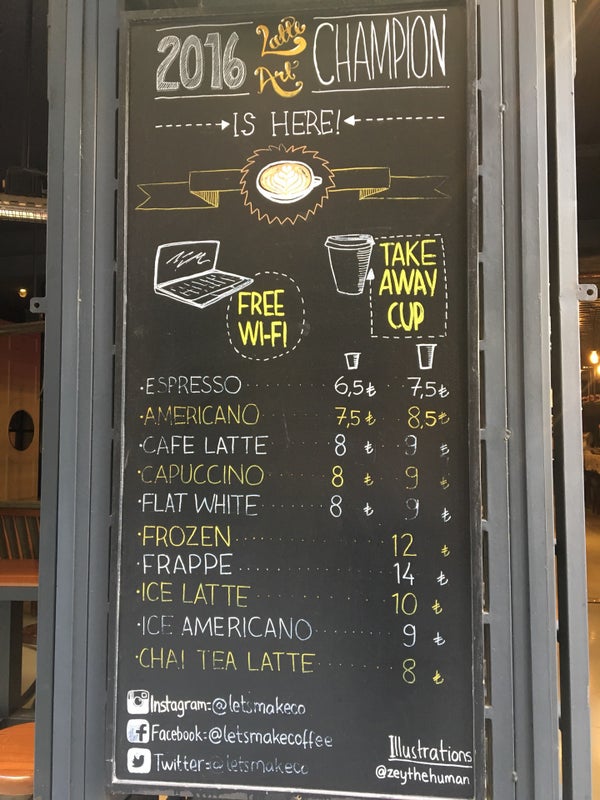 2016 Latte Art CHAMPION
IS HERE!
FREE WI-FI
TAKE AWAY CUP
·ESPRESSO 6,5₺ 7,5₺
·AMERICANO 7,5₺ 8,5₺
·CAFE LATTE 8 ₺ 9 ₺
·CAPUCCINO 8 ₺ 9 ₺
·FLAT WHITE 8 ₺ 9 ₺
·FROZEN 12 ₺
·FRAPPE 14 ₺
·ICE LATTE 10 ₺
·ICE AMERICANO 9 ₺
·CHAI TEA LATTE 8 ₺
Instagram:@letsmakeco
Facebook:@letsmakecoffee
Twitter:@letsmakeco
Illustrations
@zeythehuman